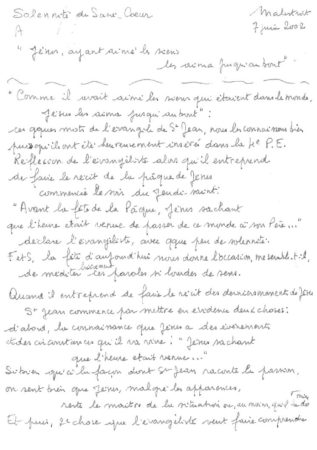 Solennité du Sacré-Coeur
Malestroit
A
7 juin 2002
"Jésus, ayant aimé les siens
les aima jusqu'au bout"
"Comme il avait aimé les siens qui étaient dans le monde,
Jésus les aima jusqu'au bout":
ces qques mots de l'évangile de St Jean, nous les connaissons bien
puisqu'ils ont été heureusement insérés dans la 4e P.E.
Réflexion de l'évangéliste alors qu'il entreprend
de faire le récit de la pâque de Jésus
commencée le soir du Jeudi-Saint.
"Avant la fête de la Pâque, Jésus sachant
que l'heure était venue de passer de ce monde à son Père..."
déclare l'évangéliste, avec qque peu de solennité.
F et S, la fête d'aujourd'hui nous donne l'occasion, me semble-t-il,
de méditer les paroles si lourdes de sens.
Quand il entreprend de faire le récit des derniers moments de Jésus
St Jean commence par mettre en évidence deux choses:
d'abord, la connaissance que Jésus a des évènements
et des circonstances qu'il va vivre: "Jésus sachant
que l'heure était venue..."
Si bien qu'à la façon dont St Jean raconte la passion,
on sent bien que Jésus, malgré les apparences,
reste le maître de la situation ou, au moins, qu'il
Et puis, 2e chose que l'évangéliste veut faire comprendre